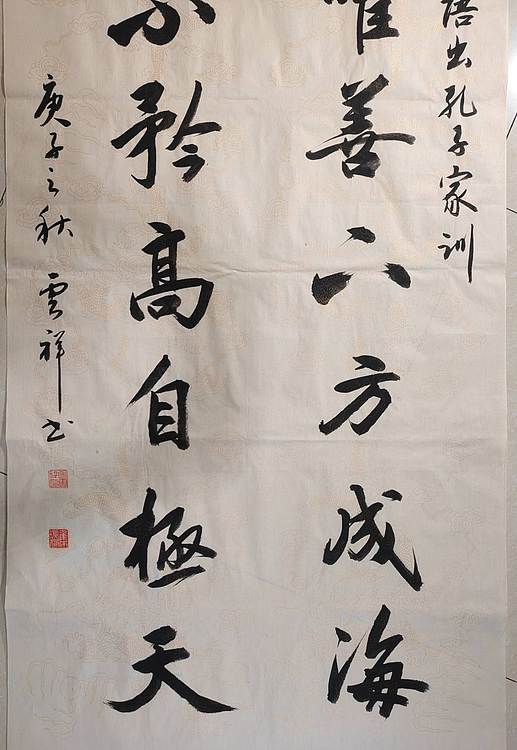 语出孔子家训
唯善下方成海
不矜高自極天
庚子之秋 雲祥书